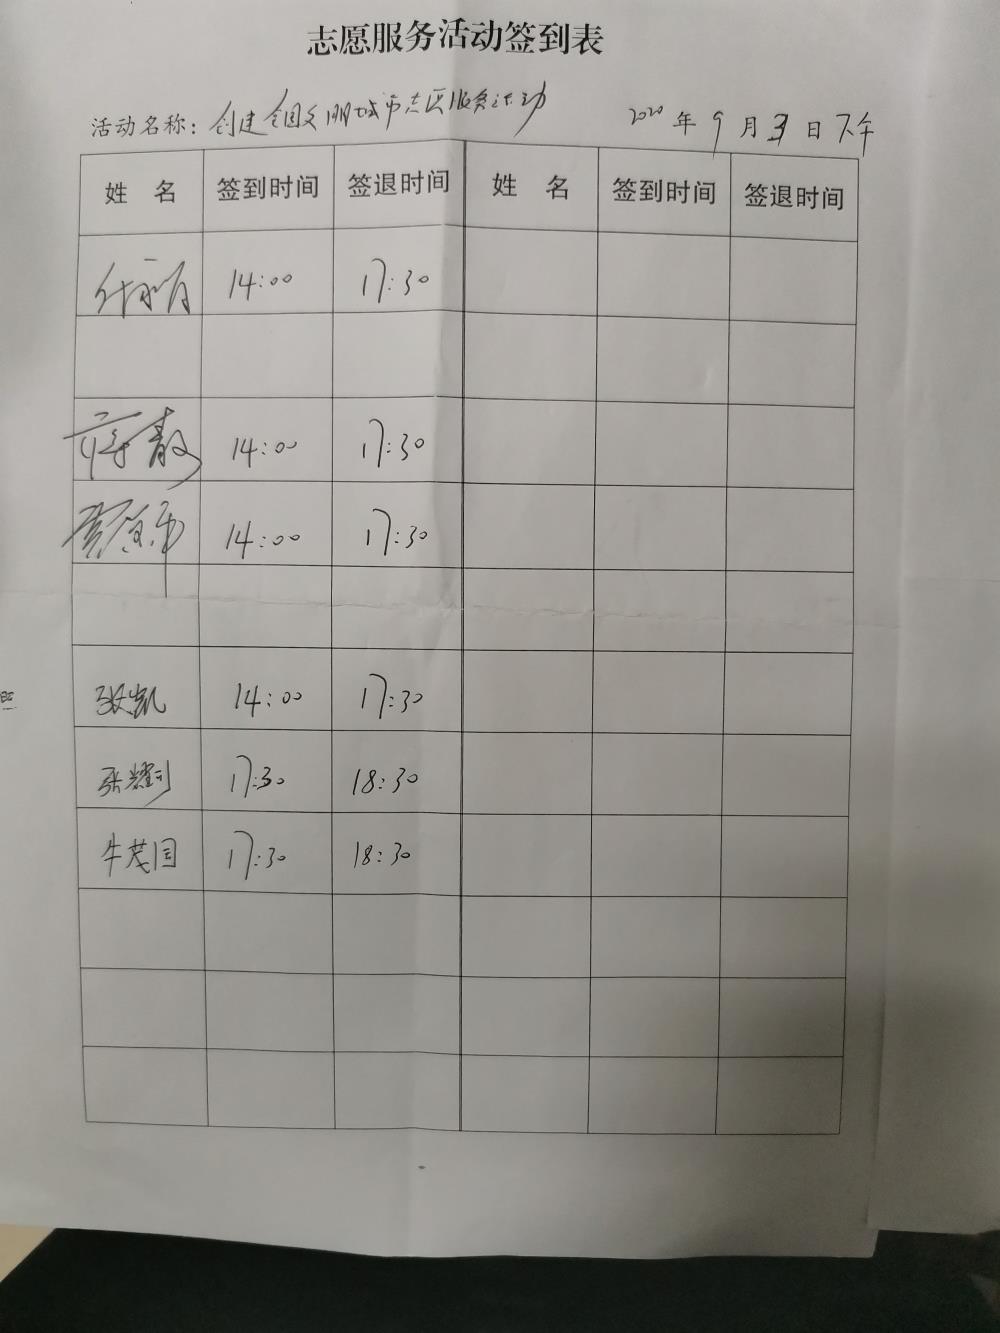 志愿服务活动签到表
活动名称：创建全国文明城市志愿服务活动 2020年9月3日下午
姓 名 签到时间 签退时间 姓 名 签到时间 签退时间
14:00 17:30
蒋毅 14:00 17:30
14:00 17:30
张凯 14:00 17:30
张耀 17:30 18:30
牛茂国 17:30 18:30